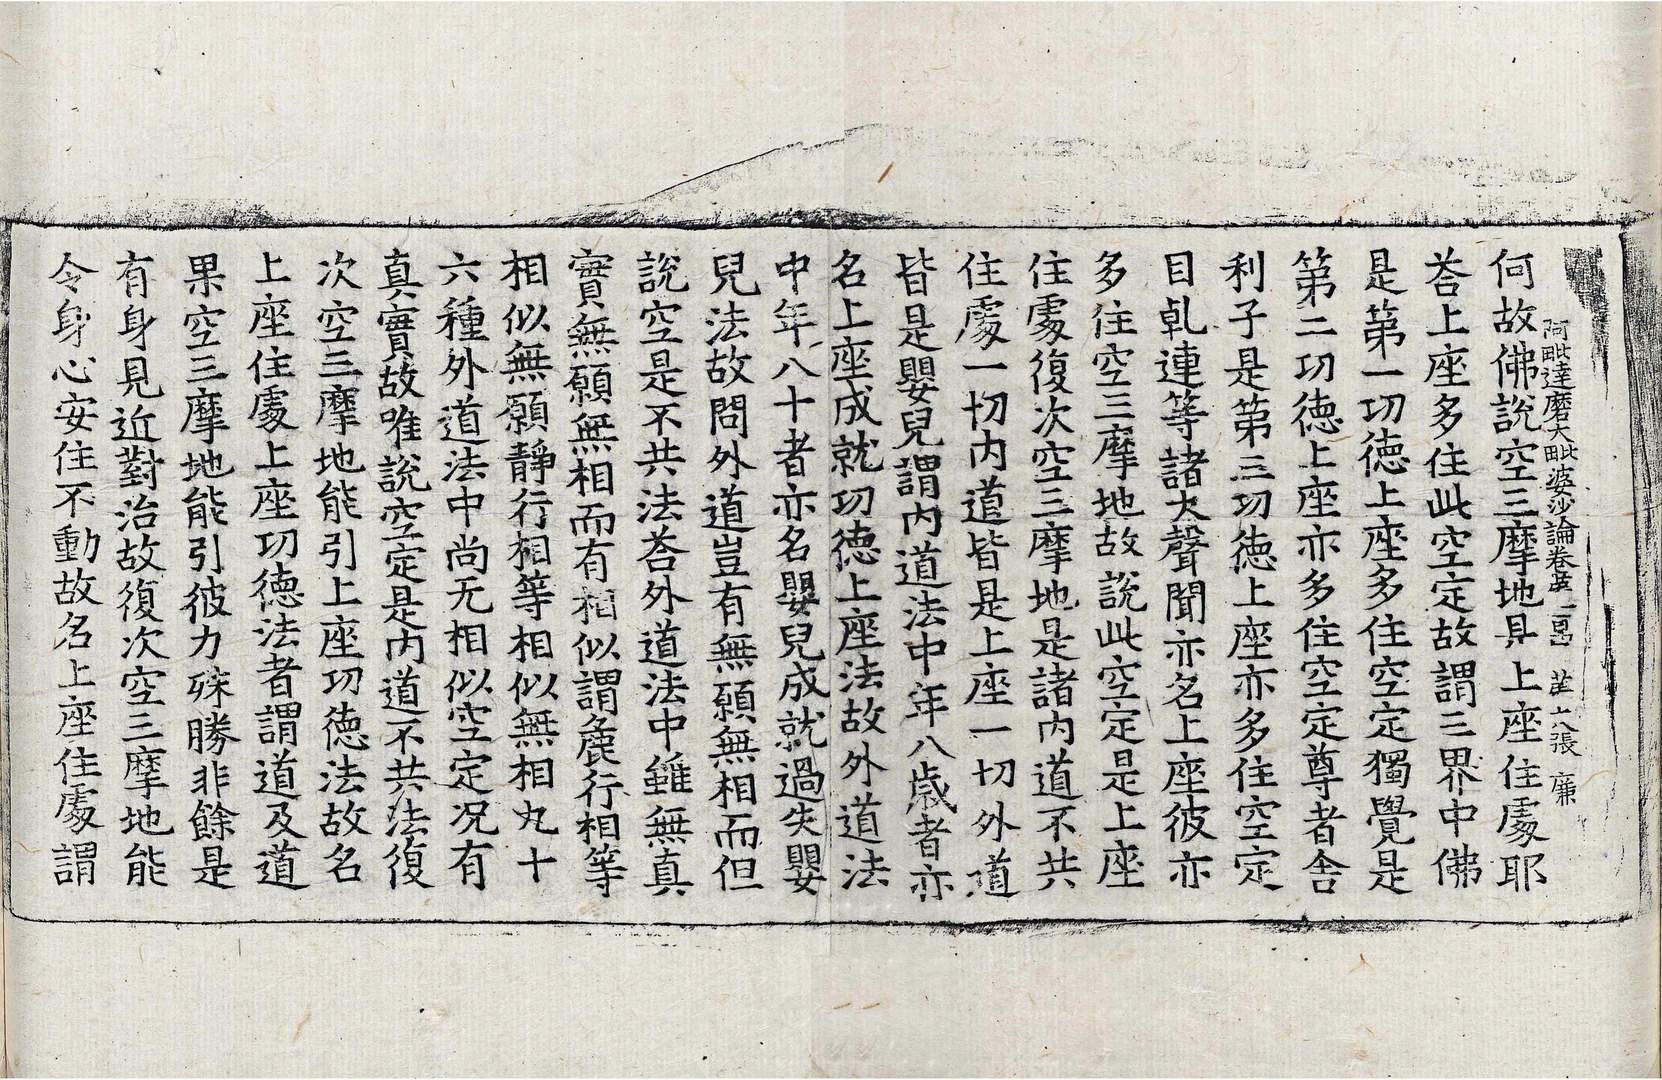 阿毗達磨大毗婆沙論卷苐一百四 苐十八張 廉
何故佛說空三摩地是上座住處耶
荅上座多住此空定故謂三界中佛
是第一功德上座多住空定獨覺是
第二功德上座亦多住空定尊者舍
利子是第三功德上座亦多住空定
目乹連等諸大聲聞亦名上座彼亦
多住空三摩地故說此空定是上座
住處復次空三摩地是諸内道不共
住處一切内道皆是上座一切外道
皆是嬰兒謂内道法中年八歲者亦
名上座成就功德上座法故外道法
中年八十者亦名嬰兒成就過失嬰
兒法故問外道豈有無願無相而但
說空是不共法荅外道法中雖無真
實無願無相而有相似謂麁行相等
相似無願靜行相等相似無相九十
六種外道法中尚无相似空定况有
真實故唯說空定是内道不共法復
次空三摩地能引上座功德法故名
上座住處上座功德法者謂道及道
果空三摩地能引彼力殊勝非餘是
有身見近對治故復次空三摩地能
令身心安住不動故名上座住處謂